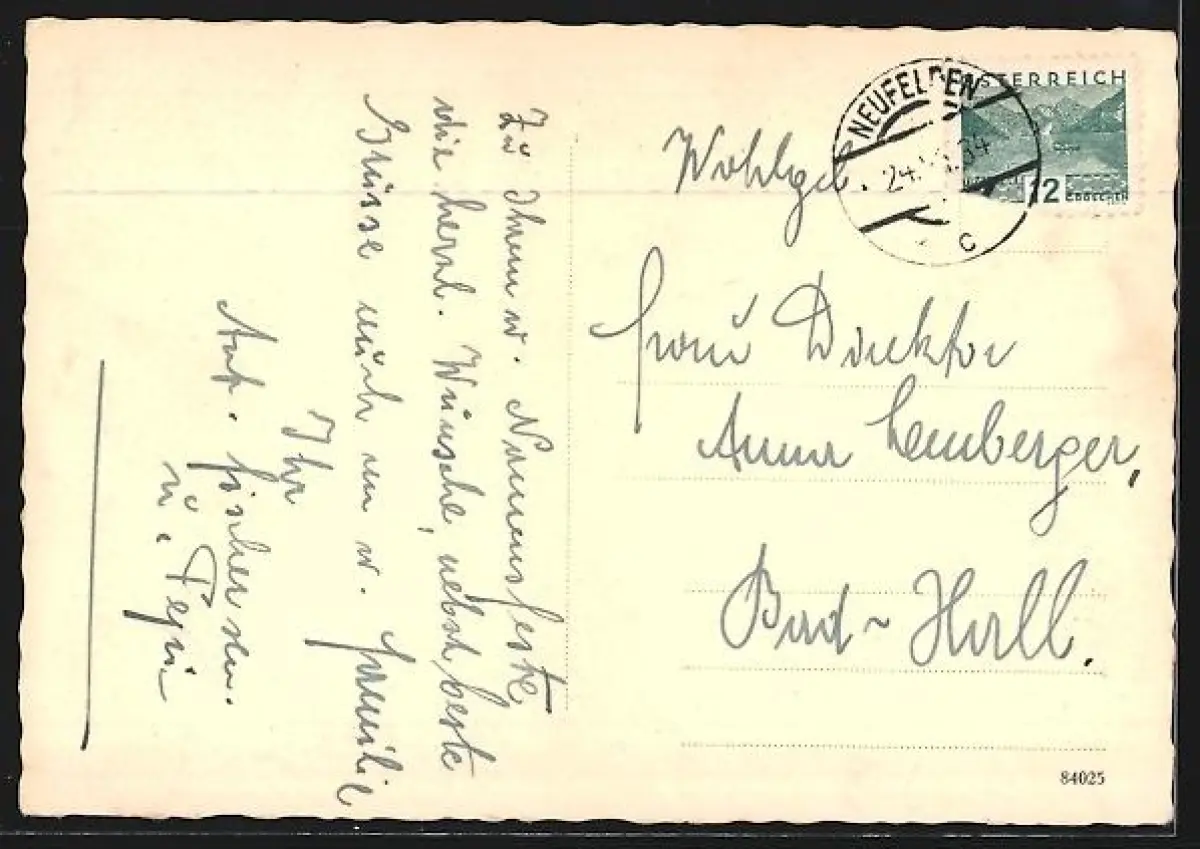 Zu Ihrem w. Namensfeste
die herzl. Wünsche, nebst beste
Grüsse auch an w. Familie
Ihr
Ant. Fischer sen.
u.
NEUFELDEN
24. 34
C
ÖSTERREICH
12 GROSCHEN
Wohlgeb
Frau Direktor
Anna Lemberger,
Bad-Hall.
84025